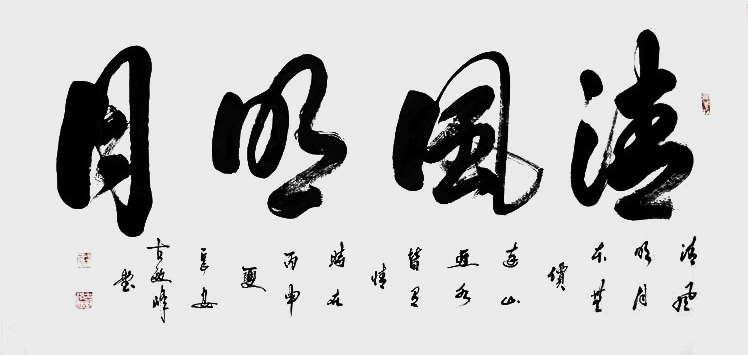 清風明月
清風
明月
本無
價
遠山
近水
皆有
情
時在
丙申
夏
長安
書